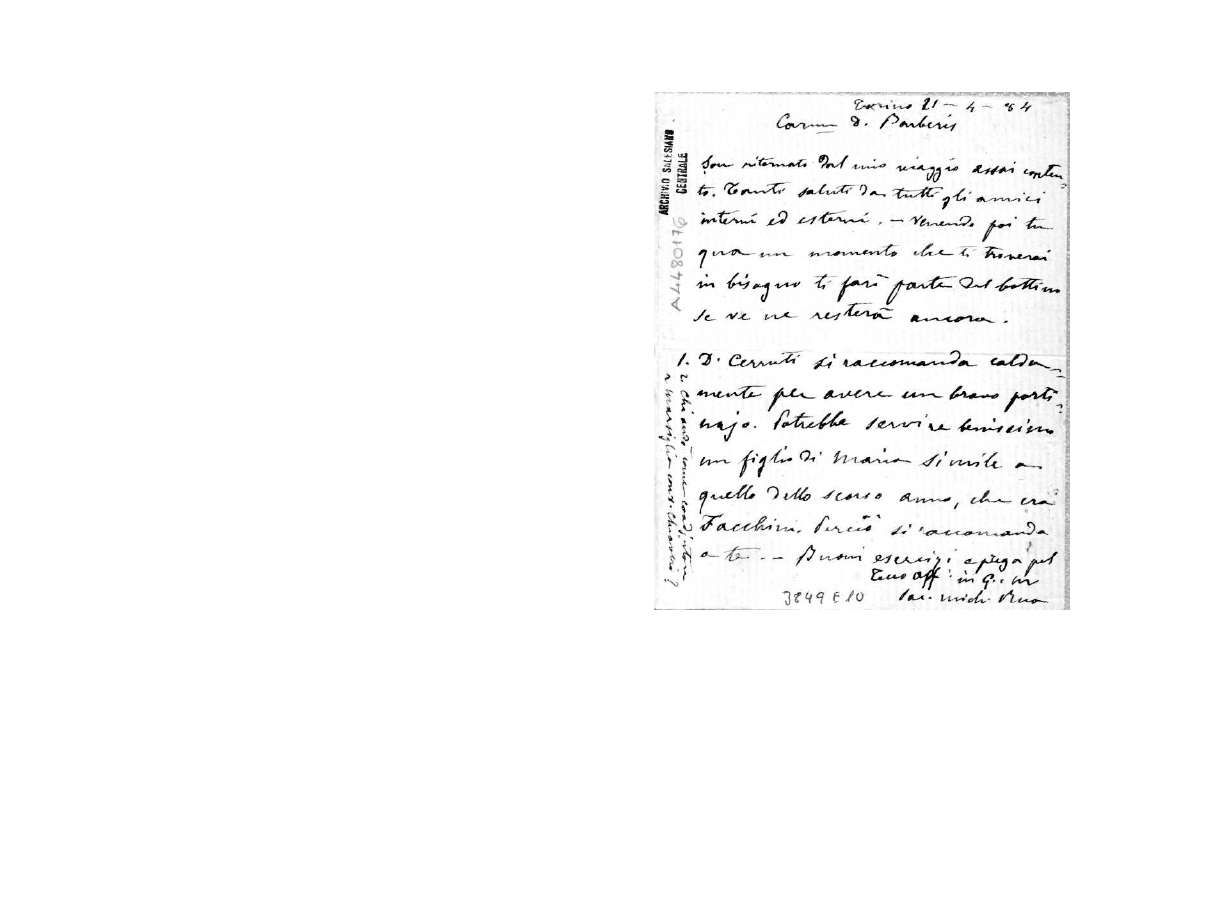 Torino 21 - 4 - 84
Carmo D. Barberis
Son ritornato dal mio viaggio assai conten-
to. Tanti saluti da tutti gli amici
interni ed esterni. - Venendo poi tu
qua un momento che ti troverai
in bisogno ti farò parte del bottino
se ve ne resterà ancora.
1. D. Cerruti si raccomanda calda-
mente per avere un bravo porti-
najo. Potrebbe servire benissimo
un figlio di Maria simile a
quello dello scorso anno, che era
Facchini. Perciò si raccomanda
a te. - Buoni esercizi e prega pel
Tuo aff in G. e M
Sac. Mich. Rua
2. Chi andò come coadjutore
a Marsiglia con D.
ARCHIVIO SALESIANO
CENTRALE
A4480176
3849 E 10